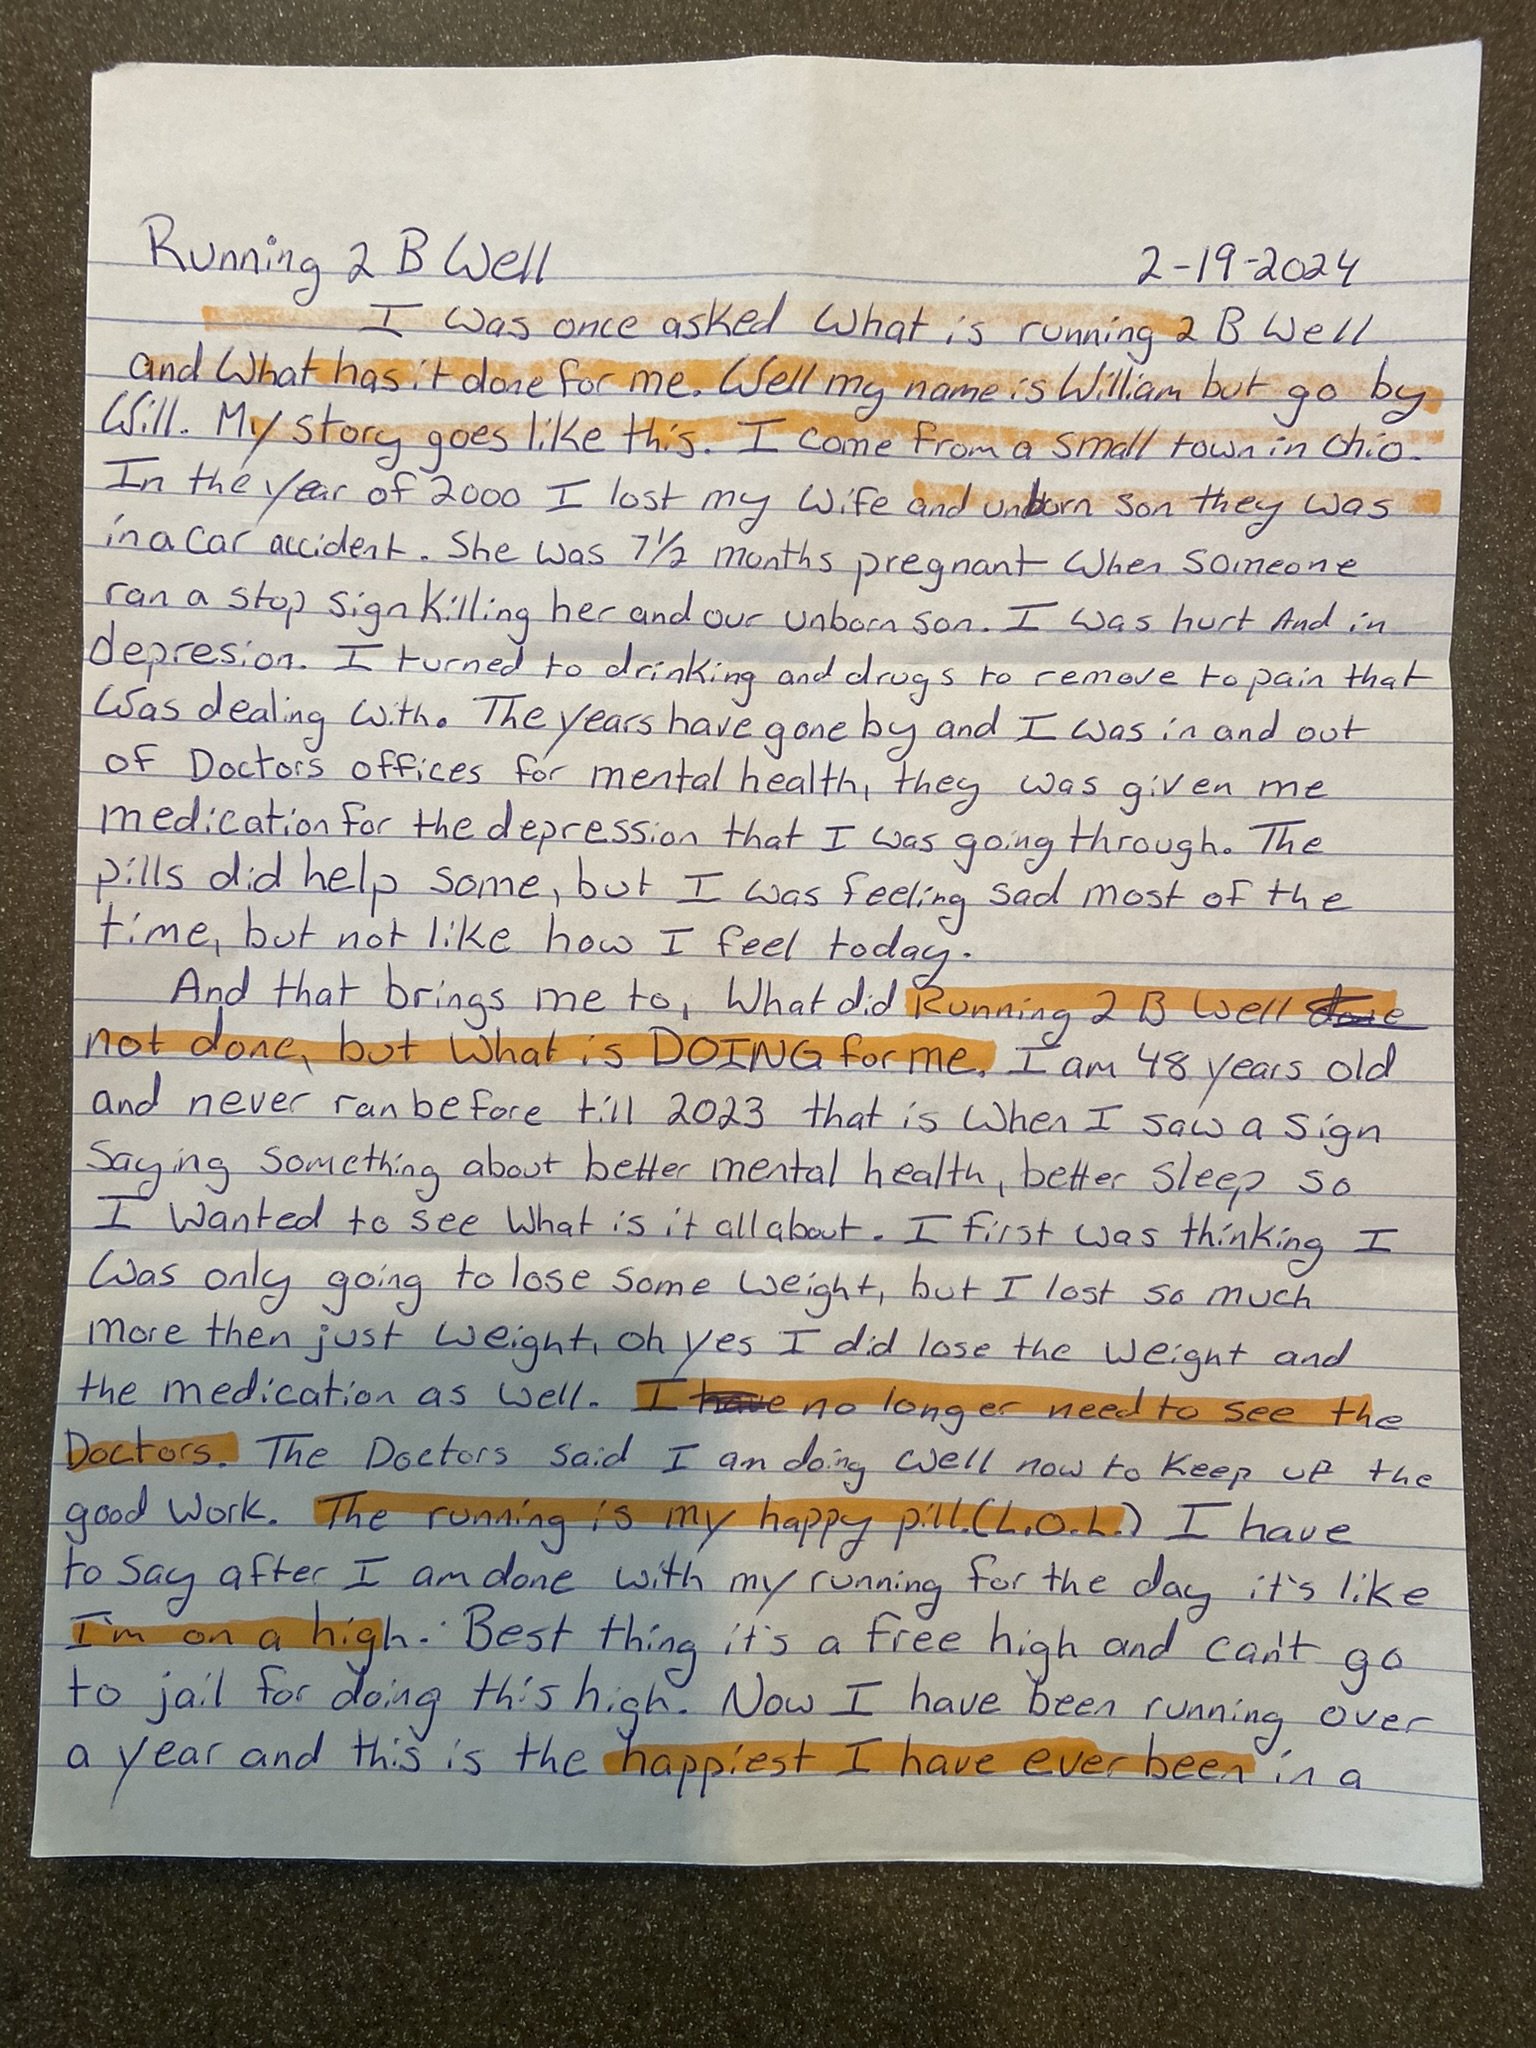 Running 2 B Well 2-19-2024
I was once asked What is running 2 B Well
and What has it done for me. Well my name is William but go by
Will. My story goes like this. I come from a small town in Ohio.
In the year of 2000 I lost my Wife and unborn son they was
in a car accident. She was 7½ months pregnant when someone
ran a stop sign killing her and our unborn son. I was hurt And in
depresion. I turned to drinking and drugs to remove to pain that
Was dealing with. The years have gone by and I was in and out
of Doctors offices for mental health, they was given me
medication for the depression that I was going through. The
pills did help some, but I was feeling sad most of the
time, but not like how I feel today.
And that brings me to, What did Running 2 B Well done
not done, but What is DOING for me. I am 48 years old
and never ran before till 2023 that is When I saw a sign
Saying something about better mental health, better sleep so
I Wanted to see What is it all about. I first was thinking I
Was only going to lose some weight, but I lost so much
more then just weight, oh yes I did lose the weight and
the medication as well. I have no longer need to see the
Doctors. The Doctors said I am doing well now to keep up the
good work. The running is my happy pill. (L.O.L.) I have
to say after I am done with my running for the day it's like
I'm on a high. Best thing it's a free high and can't go
to jail for doing this high. Now I have been running over
a year and this is the happiest I have ever been in a